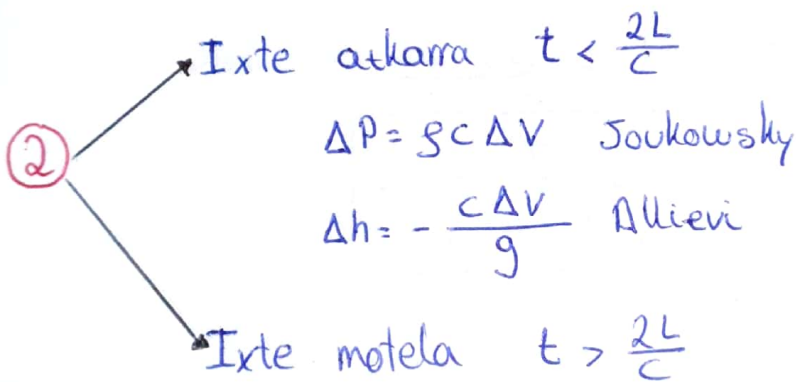 Ixte azkarra t < 2L/C
ΔP = ρCΔV Joukowsky
②
Δh = - CΔV/g Allievi
Ixte motela t > 2L/C